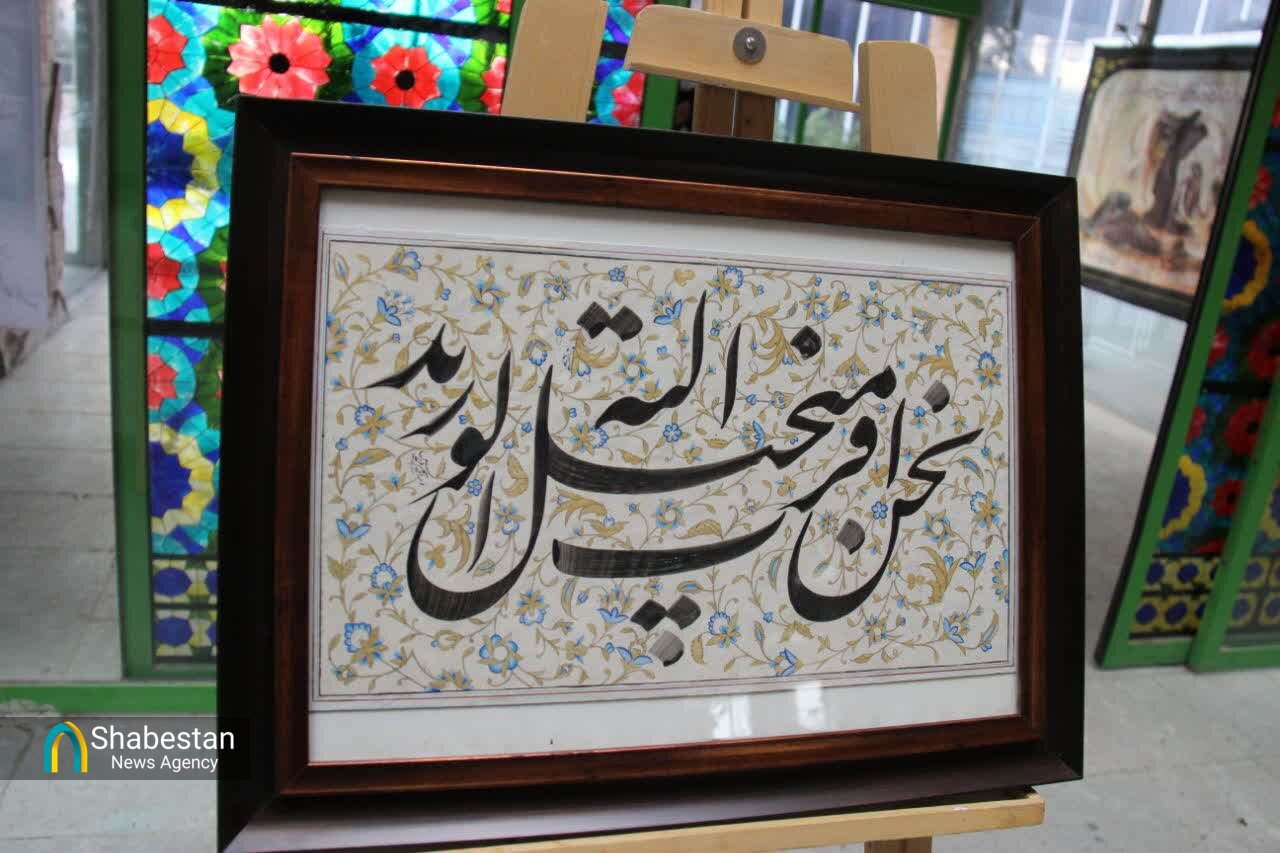 نحن اقرب الیه من حبل الورید
Shabestan
News Agency